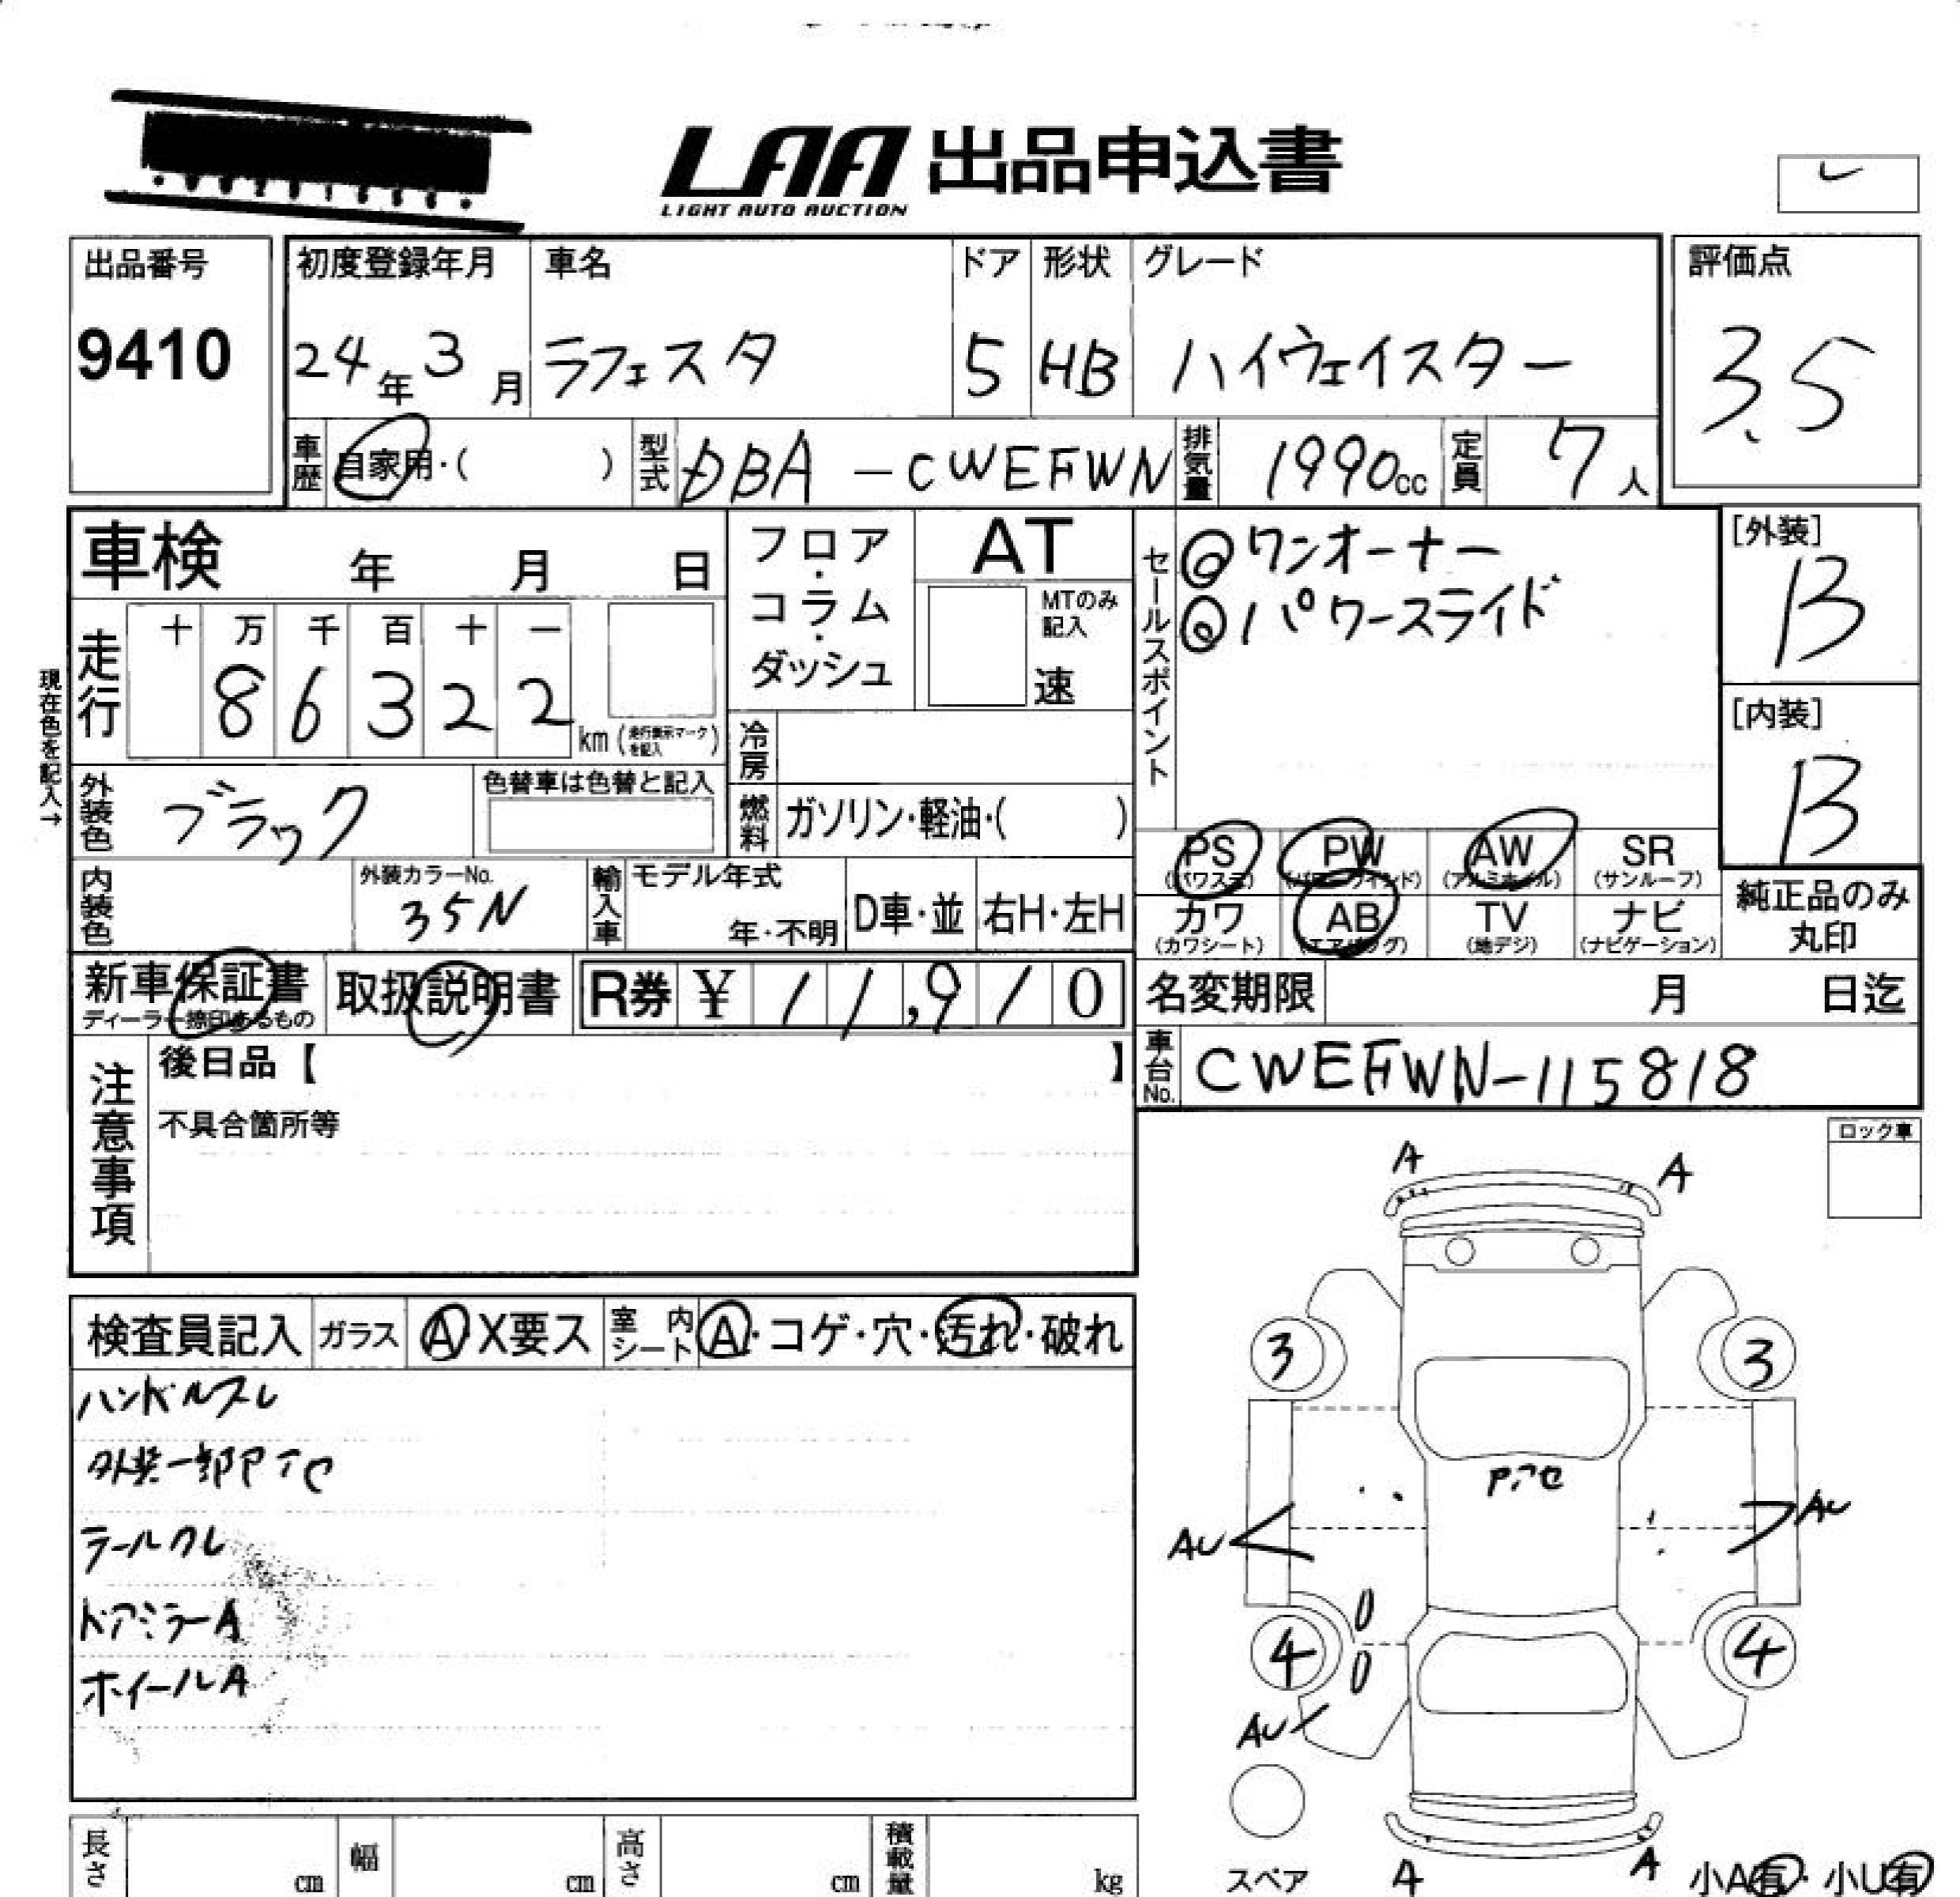 LAA 出品申込書
LIGHT AUTO AUCTION
出品番号
9410
初度登録年月
24年3月
車名
ラフェスタ
ドア
5
形状
HB
グレード
ハイウェイスター
評価点
3.5
車歴
自家用・( )
型式
DBA-CWEFWN
排気量
1990cc
定員
7人
車検 年 月 日
走行
十 万 千 百 十 一
8 6 3 2 2
km(走行表示マークを記入)
現在色を記入→
フロア・コラム・ダッシュ
AT
MTのみ記入
速
冷房
燃料
ガソリン・軽油・( )
セールスポイント
◎ワンオーナー
◎パワースライド
[外装]
B
[内装]
B
外装色
ブラック
色替車は色替と記入
内装色
外装カラーNo.
35N
輸入車
モデル年式
年・不明
D車・並
右H・左H
PS
(パワステ)
PW
(パワーウインド)
AW
(アルミホイル)
SR
(サンルーフ)
カワ
(カワシート)
AB
(エアバッグ)
TV
(地デジ)
ナビ
(ナビゲーション)
純正品のみ
丸印
新車保証書
ディーラー捺印あるもの
取扱説明書
R券 ¥ 11,910
名変期限 月 日迄
車台No.
CWEFWN-115818
注意事項
後日品【 】
不具合箇所等
ロック車
検査員記入
ガラス
A・X要ス
室内シート
A・コゲ・穴・汚れ・破れ
ハンドルスレ
外装一部Pアセ
テールクレ
ドアミラーA
ホイールA
A
A
3
3
Pアセ
AU
AU
4
4
AU
スペア
A
A
小A有・小U有
長さ
cm
幅
cm
高さ
cm
積載量
kg